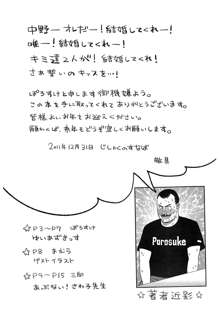 中野ーオレだー!結婚してくれー!
唯ー!結婚してくれー!
キミ達2人が!結婚してくれー!
さあ誓いのキッスを…!
ぽろすけと申します御機嫌よう。
この本を手に取ってくれてありがとうございます。
皆様よいお年をお迎えください。
願わくば、来年もどうぞ宜しくお願いします。
2011年12月31日 じしゃくのすなば
敬具
☆P3〜P7 ぽろすけ
ゆいあずきっす
☆P8 まむう
ゲストイラスト
☆P9〜P15 三郎
あぶない!さわ子先生
Porosuke
☆著者近影☆